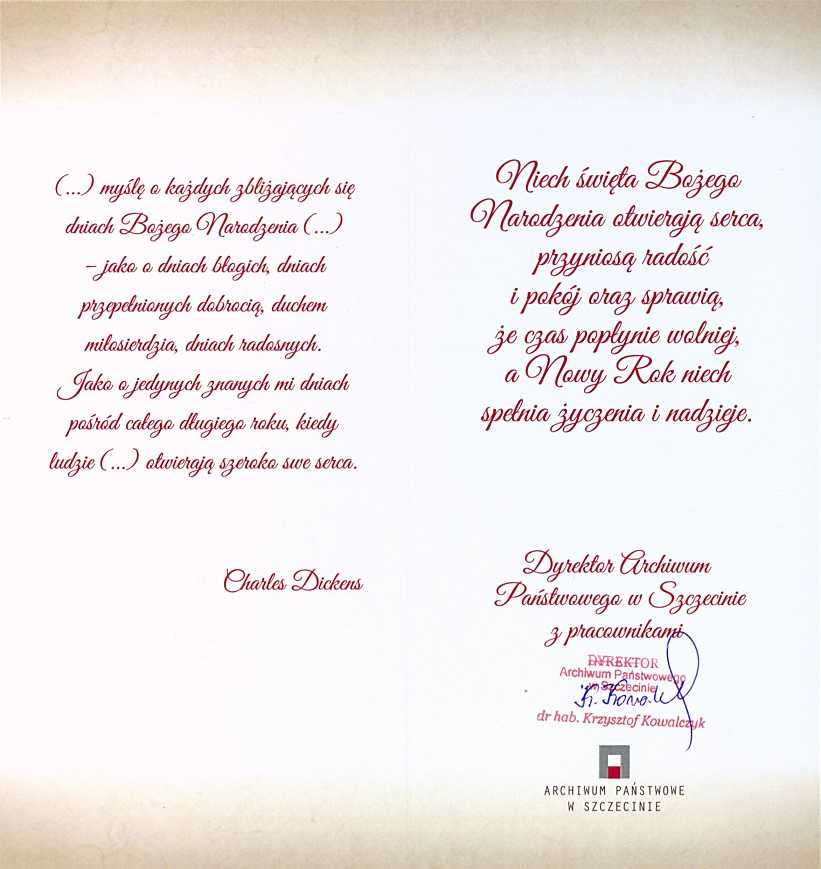 (...) myślę o każdych zbliżających się
dniach Bożego Narodzenia (...)
– jako o dniach błogich, dniach
przepełnionych dobrocią, duchem
miłosierdzia, dniach radosnych.
Jako o jedynych znanych mi dniach
pośród całego długiego roku, kiedy
ludzie (...) otwierają szeroko swe serca.
Charles Dickens
Niech święta Bożego
Narodzenia otwierają serca,
przyniosą radość
i pokój oraz sprawią,
że czas popłynie wolniej,
a Nowy Rok niech
spełnia życzenia i nadzieje.
Dyrektor Archiwum
Państwowego w Szczecinie
z pracownikami
DYREKTOR
Archiwum Państwowego
w Szczecinie
K. Kowal
dr hab. Krzysztof Kowalczyk
ARCHIWUM PAŃSTWOWE
W SZCZECINIE